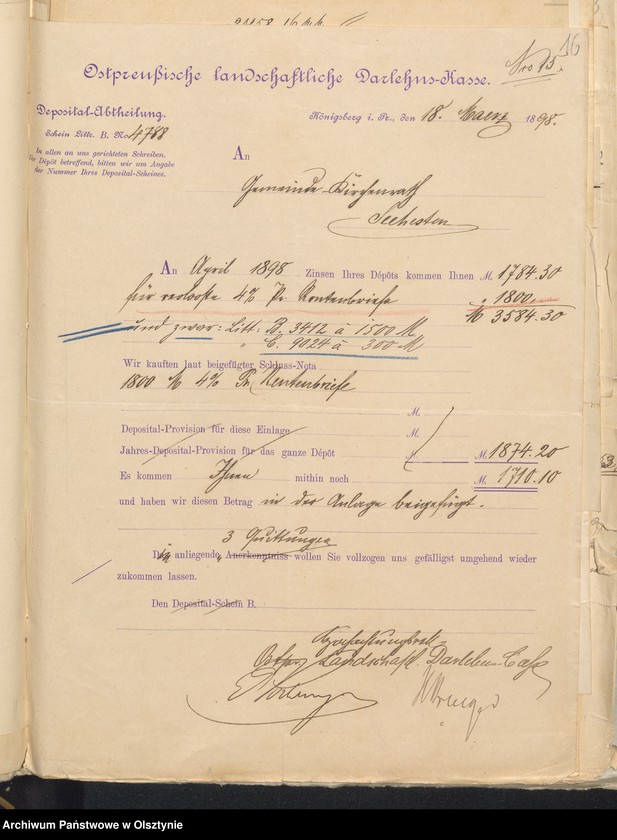 16
Nro 15.
Ostpreußische landschaftliche Darlehns-Kasse.
Deposital-Abtheilung.
Königsberg i. Pr., den 18. Maerz 1898.
Schein Litt. B. No 4788
In allen an uns gerichteten Schreiben,
Ihr Dépôt betreffend, bitten wir um Angabe
der Nummer Ihres Deposital-Scheines.
An
Gemeinde-Kirchenrath
Seehesten
An April 1898 Zinsen Ihres Dépôts kommen Ihnen M. 1784.30
für verlooste 4% Pr. Rentenbriefe " 1800.
M 3584.30
und zwar: Litt: B. 3412 à 1500 M
" C. 9024 à 300 M
Wir kauften laut beigefügter Schluss-Nota
1800 M 4% Pr. Rentenbriefe
M.
Deposital-Provision für diese Einlage M.
Jahres-Deposital-Provision für das ganze Dépôt M. M. 1874.20
Es kommen Ihnen mithin noch M. 1710.10
und haben wir diesen Betrag in der Anlage beigefügt.
3 Quittungen
Die anliegende Anerkenntniss wollen Sie vollzogen uns gefälligst umgehend wieder
zukommen lassen.
Den Deposital-Schein B.
Hochachtungsvoll
Ostpr. Landschaftl. Darlehns-Casse
Archiwum Państwowe w Olsztynie